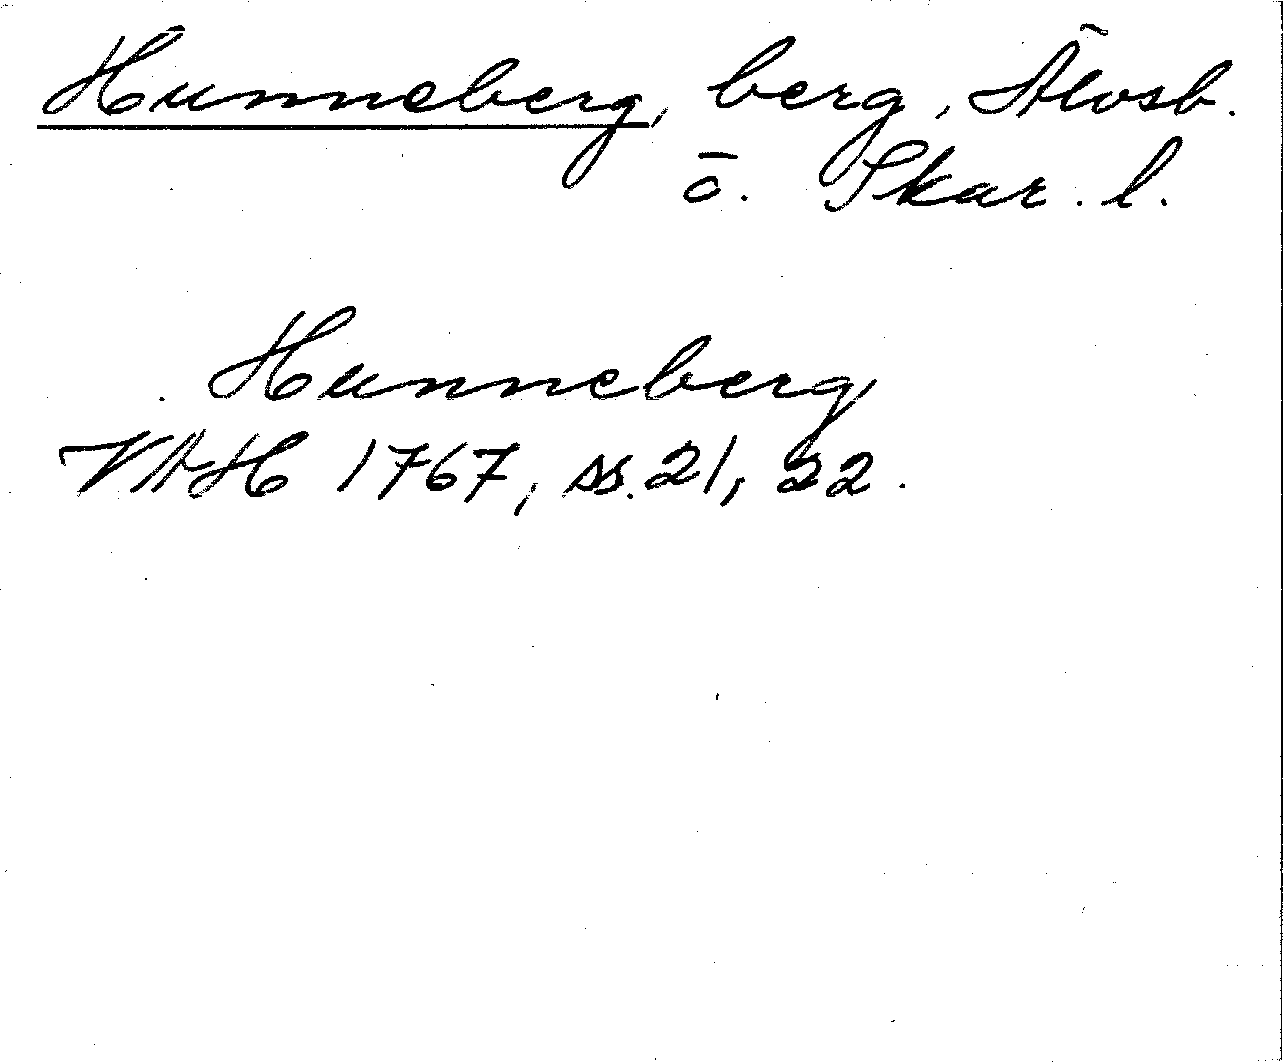 Hunneberg, berg, Älvsb.
o. Skar. l.
Hunneberg
VAH 1767, ss. 21, 22.